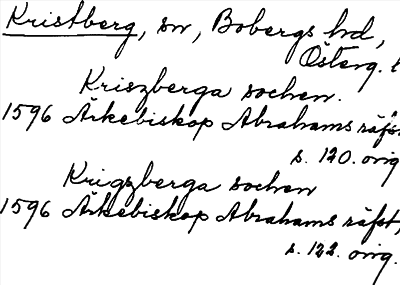 Kristberg, sn, Bobergs hd,
Österg. l
Kriszberga sochen.
1596 Ärkebiskop Abrahams räfst
s. 120. orig
Krigzberga sochen
1596 Ärkebiskop Abrahams räfst,
s. 122. orig.